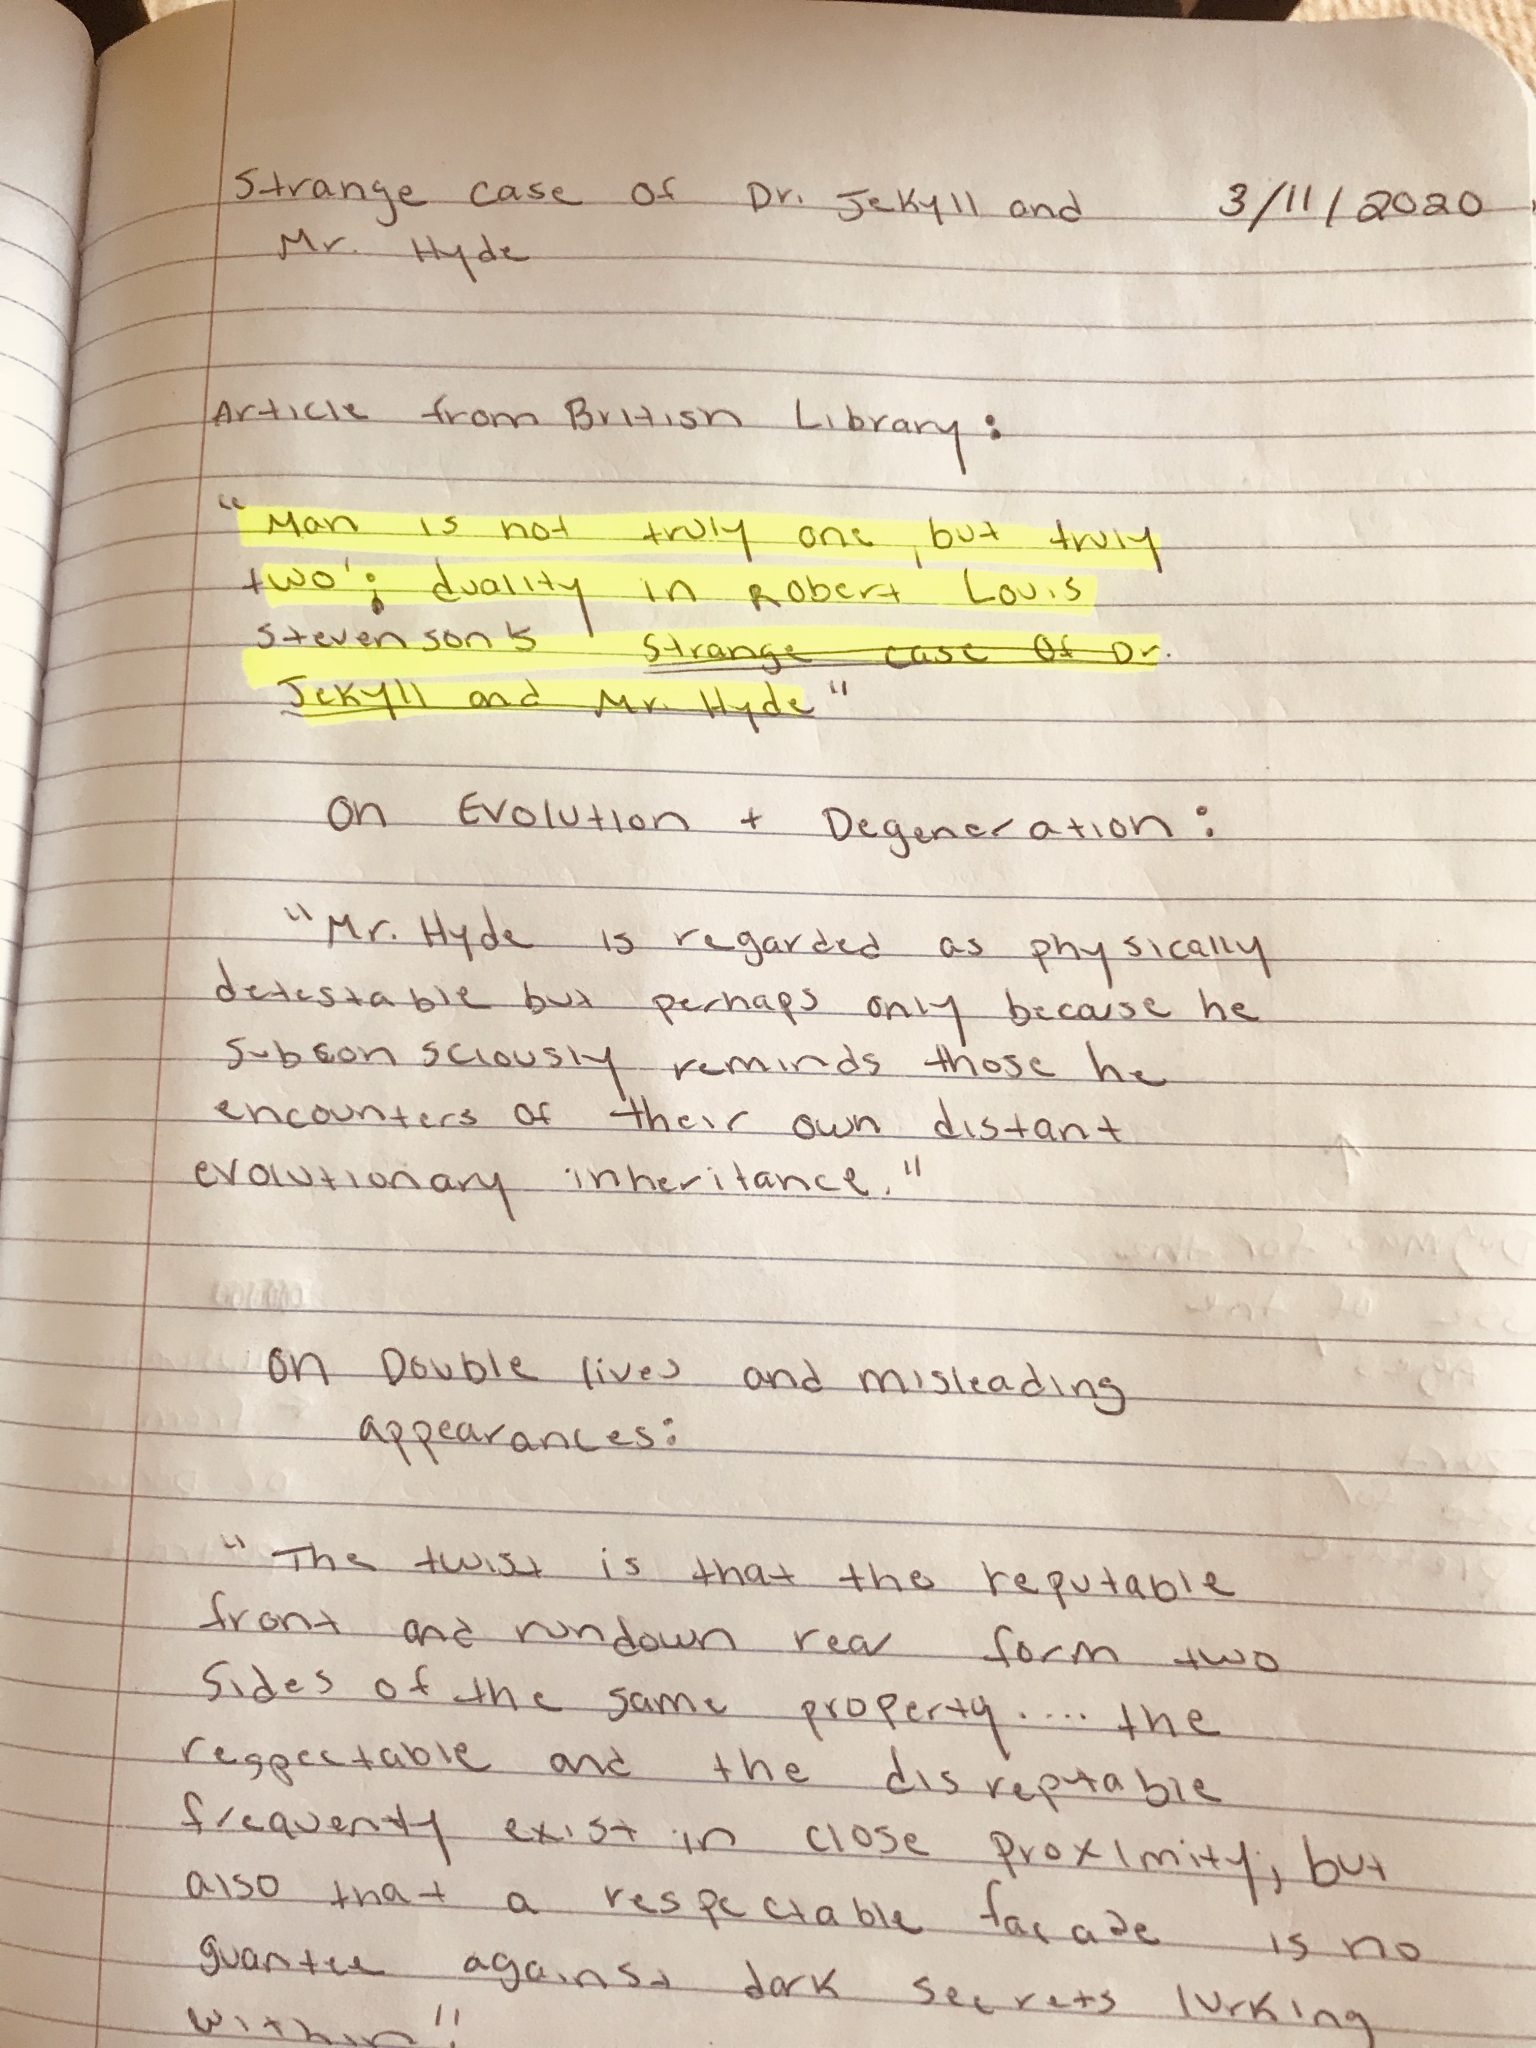 Strange case of Dr. Jekyll and 3/11/2020
Mr. Hyde
Article from British Library:
"Man is not truly one, but truly
two': duality in Robert Louis
Stevenson's Strange case of Dr.
Jekyll and Mr. Hyde"
on Evolution + Degeneration:
"Mr. Hyde is regarded as physically
detestable but perhaps only because he
subconsciously reminds those he
encounters of their own distant
evolutionary inheritance."
on Double lives and misleading
appearances:
"The twist is that the reputable
front and rundown rear form two
sides of the same property.... the
respectable and the disreptable
frequently exist in close proximity, but
also that a respectable facade is no
guantee against dark secrets lurking
within".